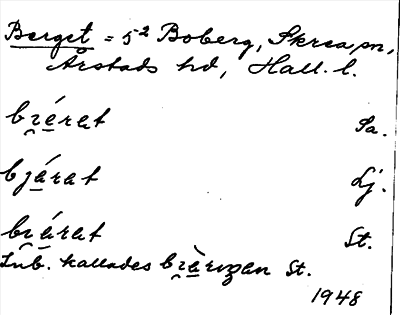 Berget = 5² Boberg, Skrea sn,
Årstads hd, Hall. l.
bi̯ä́rat Sa.
bjä́rat Lj.
bi̯ä́rat St.
Inb. kallades St.
1948